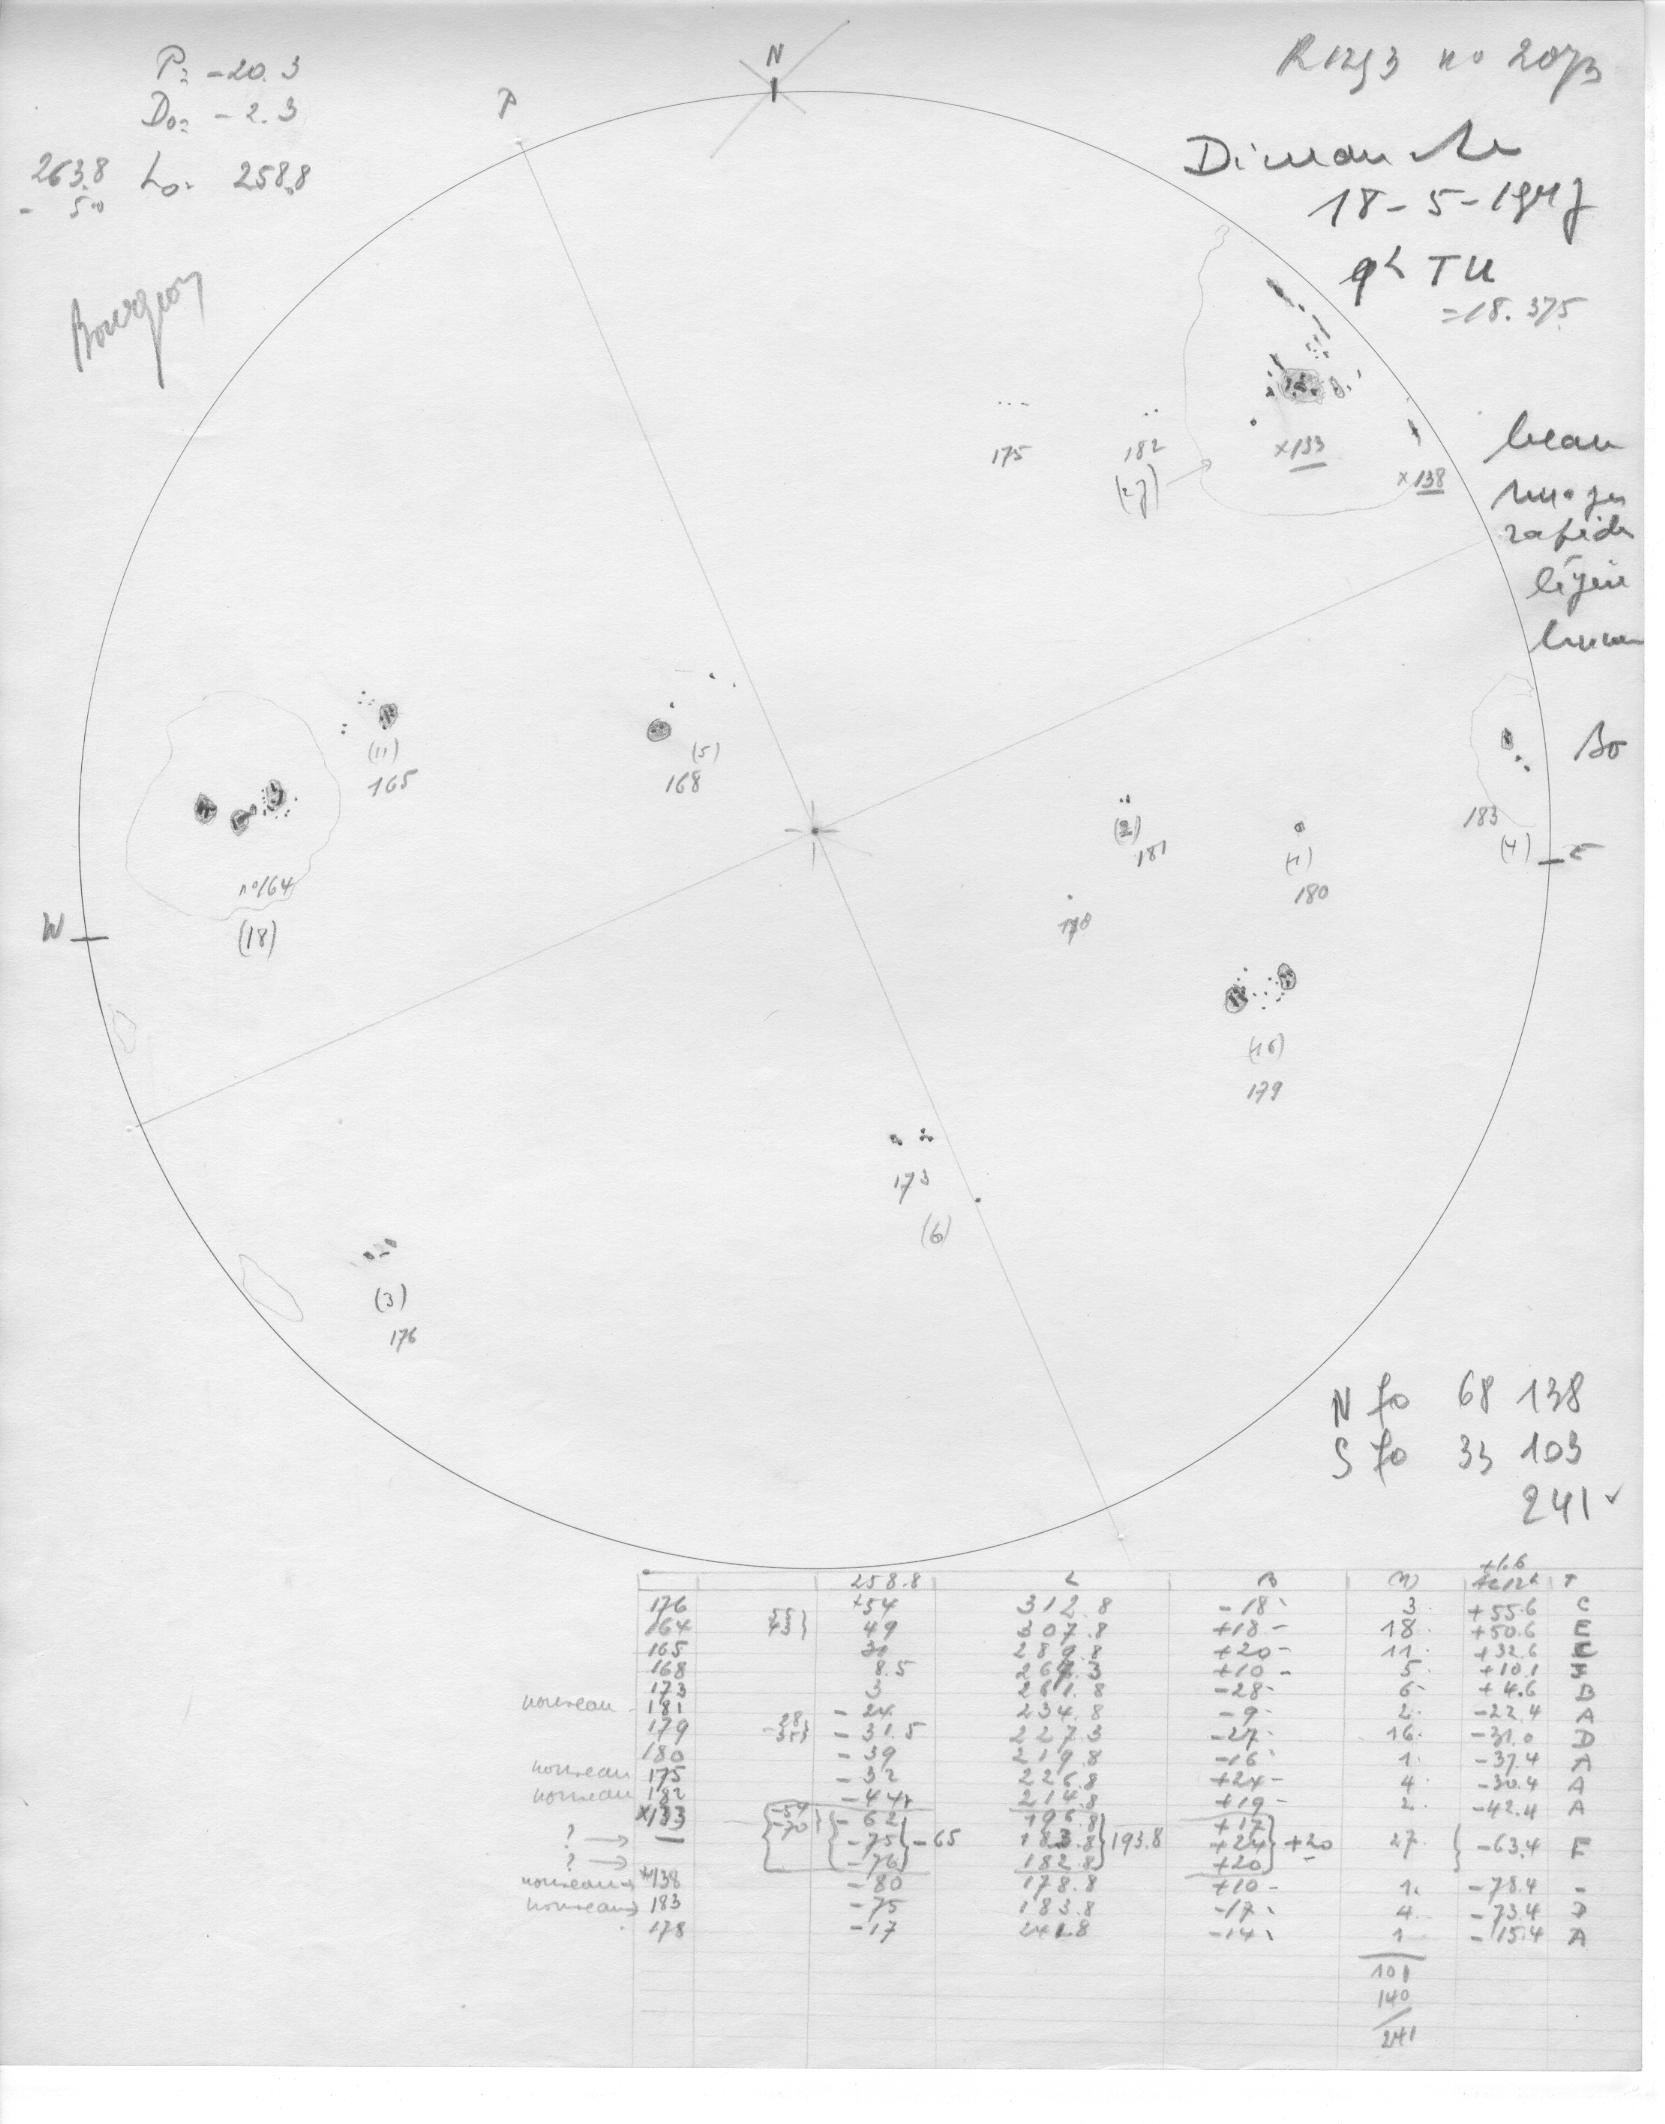 P= -20.3
D₀= -2.3
263.8 L₀= 258.8
- 5.0
Bourgeon
N
P
R1293 no 2073
Dimanche
18-5-1947
9h TU
=18.375
beau
nuages
rapides
légère
brume
Bo
175
182
(27)
x133
x138
(11)
165
(5)
168
n°164
(18)
(2)
181
(1)
180
178
183
(4)
E
W
(16)
179
173
(6)
(3)
176
N fo 68 138
S fo 33 103
241
+1.6
258.8 L B (n) T
176 +54 312.8 -18 3 +55.6 C
164 55 43} 49 307.8 +18 18 +50.6 E
165 31 289.8 +20 11 +32.6 E
168 8.5 267.3 +10 5 +10.1 I
173 3 261.8 -28 6 +4.6 B
nouveau 181 -24 234.8 -9 2 -22.4 A
179 -28 -35} -31.5 227.3 -27 16 -31.0 D
180 -39 219.8 -16 1 -37.4 A
nouveau 175 -32 226.8 +24 4 -30.4 A
nouveau 182 -44 214.8 +19 2 -42.4 A
x133 {-54 -70} {-62 196.8 +17
? → — -75 }-65 183.8 }193.8 +24 }+20 27 } -63.4 F
? → -76 182.8 +20
nouveau → x138 -80 178.8 +10 1 -78.4 -
nouveau → 183 -75 183.8 -17 4 -73.4 D
178 -17 241.8 -14 1 -15.4 A
101
140
241